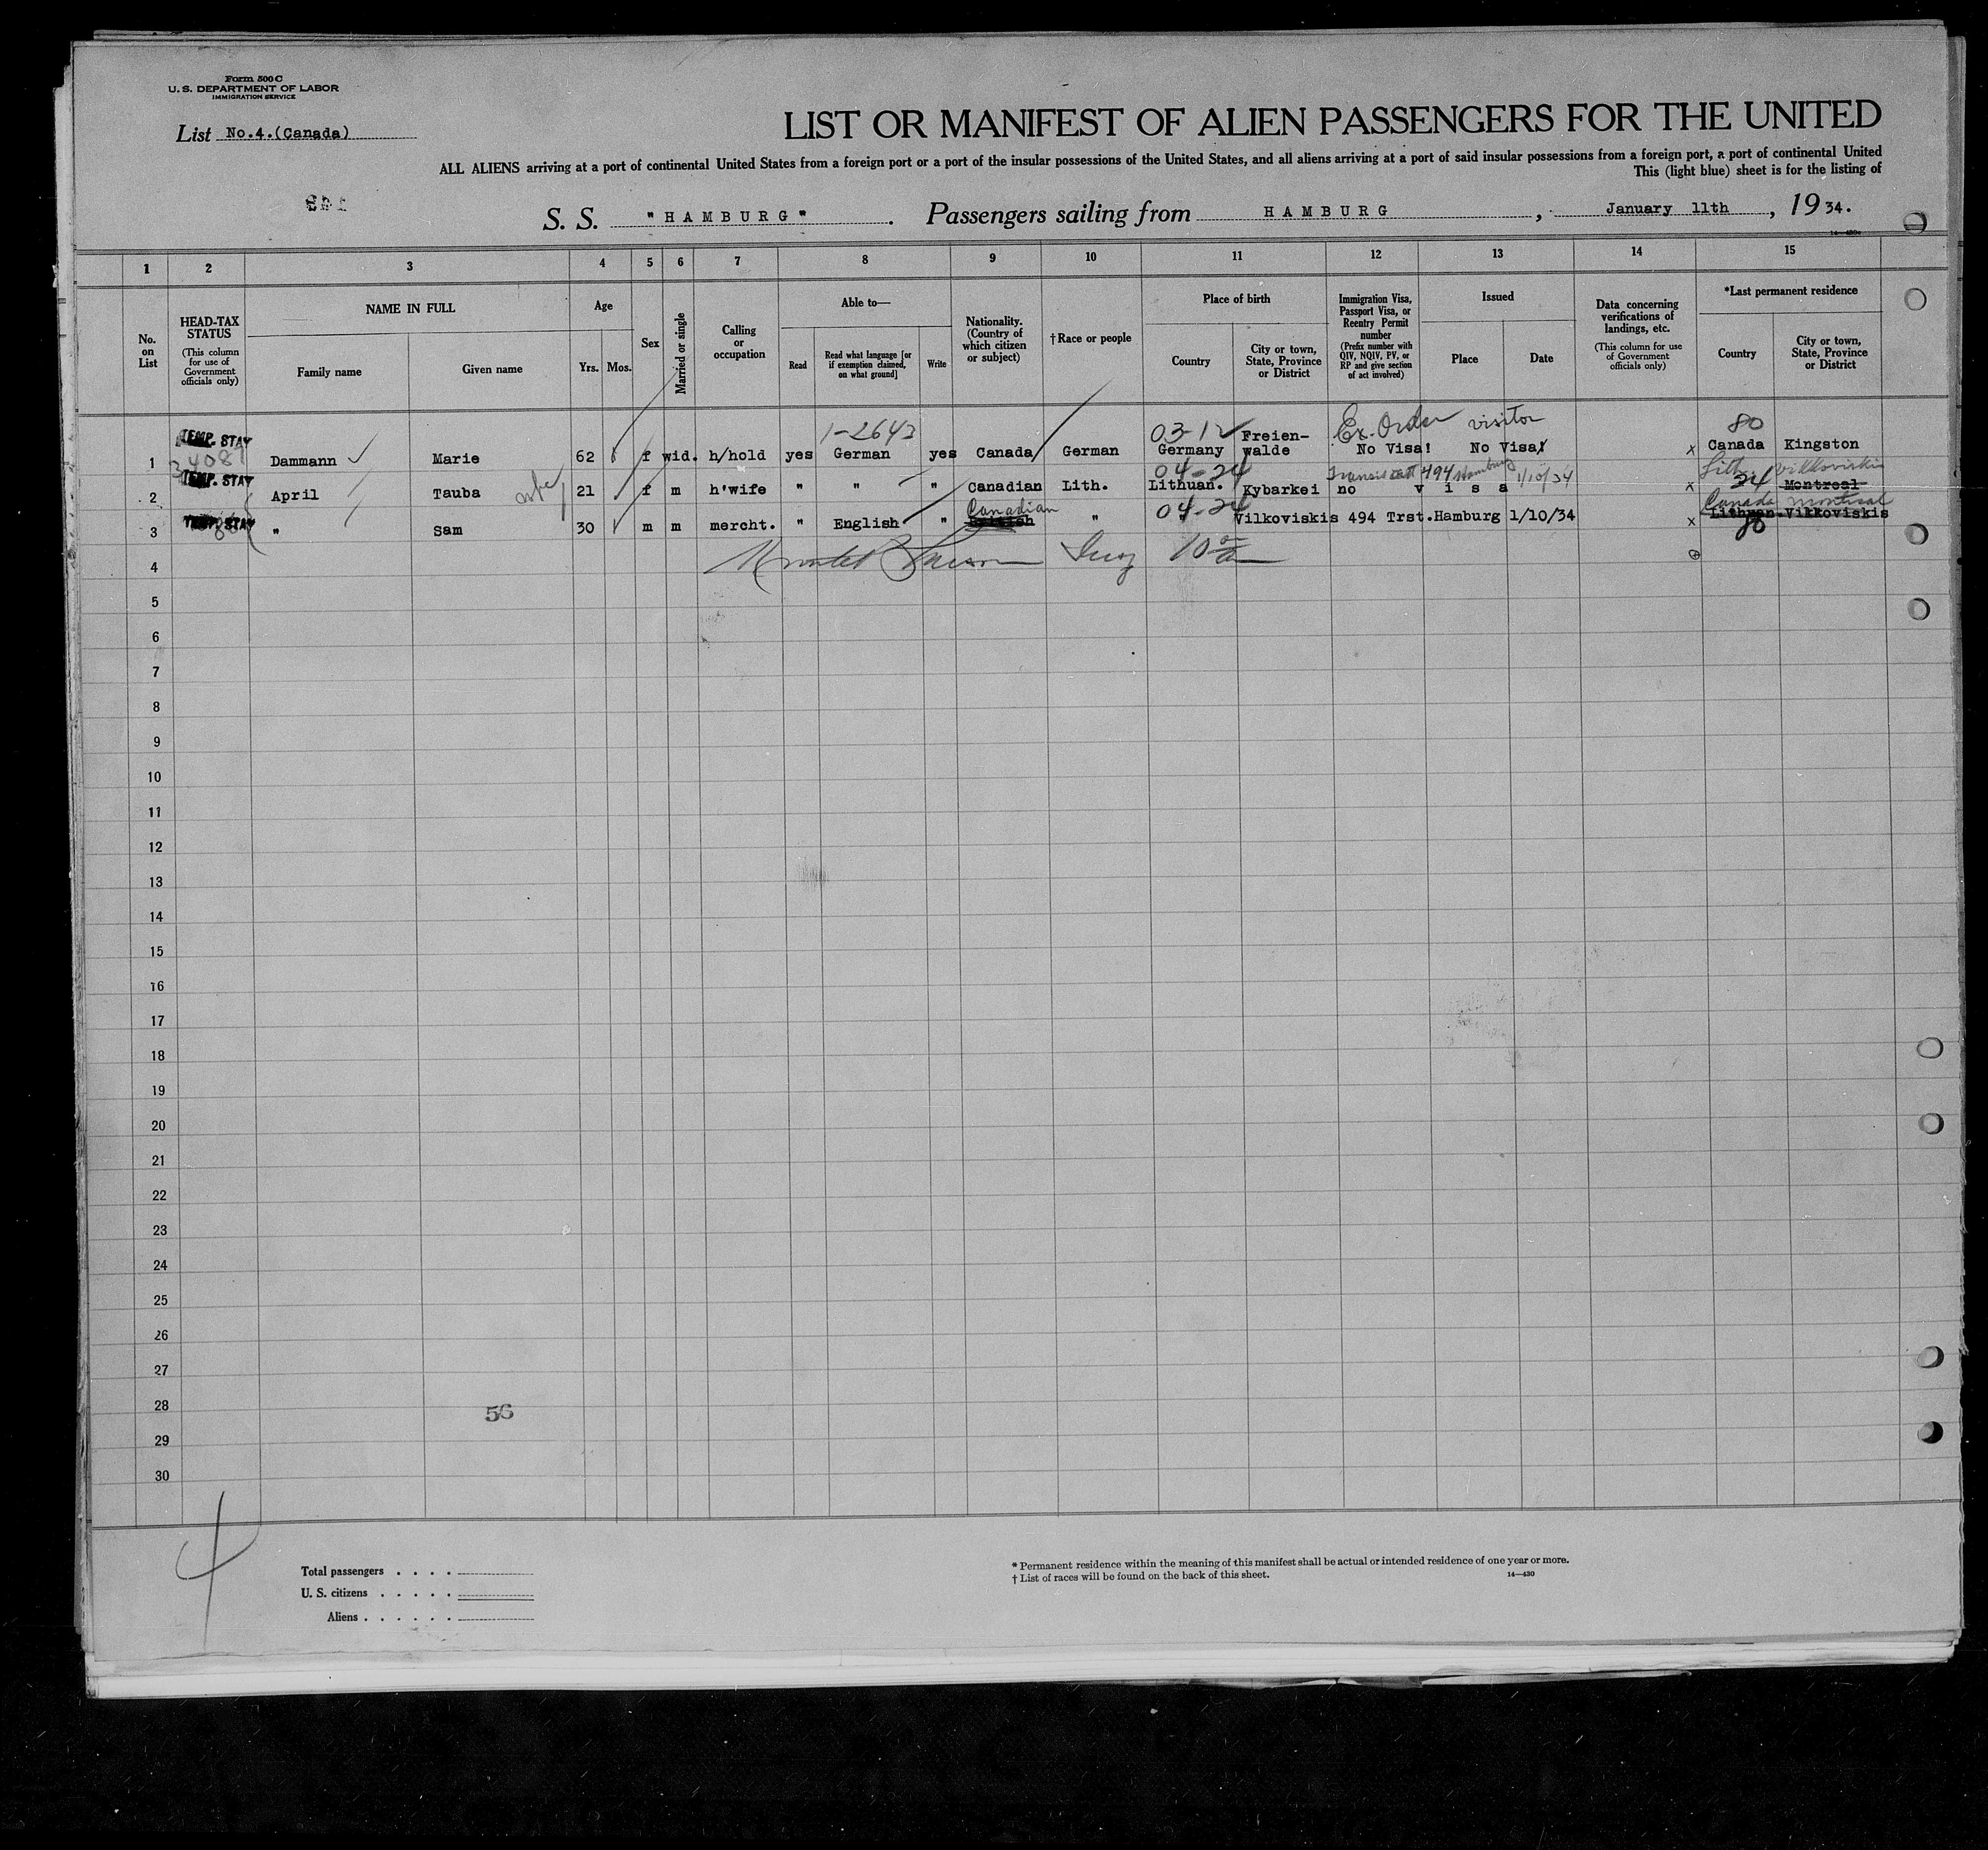 Form 500 C
U. S. DEPARTMENT OF LABOR
IMMIGRATION SERVICE
List No.4.(Canada)
LIST OR MANIFEST OF ALIEN PASSENGERS FOR THE UNITED
ALL ALIENS arriving at a port of continental United States from a foreign port or a port of the insular possessions of the United States, and all aliens arriving at a port of said insular possessions from a foreign port, a port of continental United
This (light blue) sheet is for the listing of
S. S. "HAMBURG". Passengers sailing from HAMBURG, January 11th, 1934.
1 2 3 4 5 6 7 8 9 10 11 12 13 14 15
No. on List
HEAD-TAX STATUS (This column for use of Government officials only)
NAME IN FULL
Family name Given name
Age
Yrs. Mos.
Sex
Married or single
Calling or occupation
Able to—
Read Read what language [or if exemption claimed, on what ground] Write
Nationality. (Country of which citizen or subject)
†Race or people
Place of birth
Country City or town, State, Province or District
Immigration Visa, Passport Visa, or Reentry Permit number (Prefix number with QIV, NQIV, PV, or RP and give section of act involved)
Issued
Place Date
Data concerning verifications of landings, etc. (This column for use of Government officials only)
*Last permanent residence
Country City or town, State, Province or District
TEMP. STAY 1-2643 03-12 Ex. Order visitor 80
1 Dammann Marie 62 f wid. h/hold yes German yes Canada German Germany Freien-walde No Visa! No Visa! x Canada Kingston
TEMP. STAY 04-24 Transit 494 Hamburg 1/10/34 Lith. Vilkoviskis
2 April Tauba 21 f m h'wife " " " Canadian Lith. Lithuan. Kybarkei no visa x 24 Montreal
TEMP. STAY Canadian 04-24 Canada Montreal
3 " Sam 30 m m mercht. " English " British " Vilkoviskis 494 Trst.Hamburg 1/10/34 x Lithuan. Vilkoviskis
80
4
5
6
7
8
9
10
11
12
13
14
15
16
17
18
19
20
21
22
23
24
25
26
27
28
56
29
30
Total passengers . . . .
U. S. citizens . . . . .
Aliens . . . . . .
* Permanent residence within the meaning of this manifest shall be actual or intended residence of one year or more.
† List of races will be found on the back of this sheet.
14—430